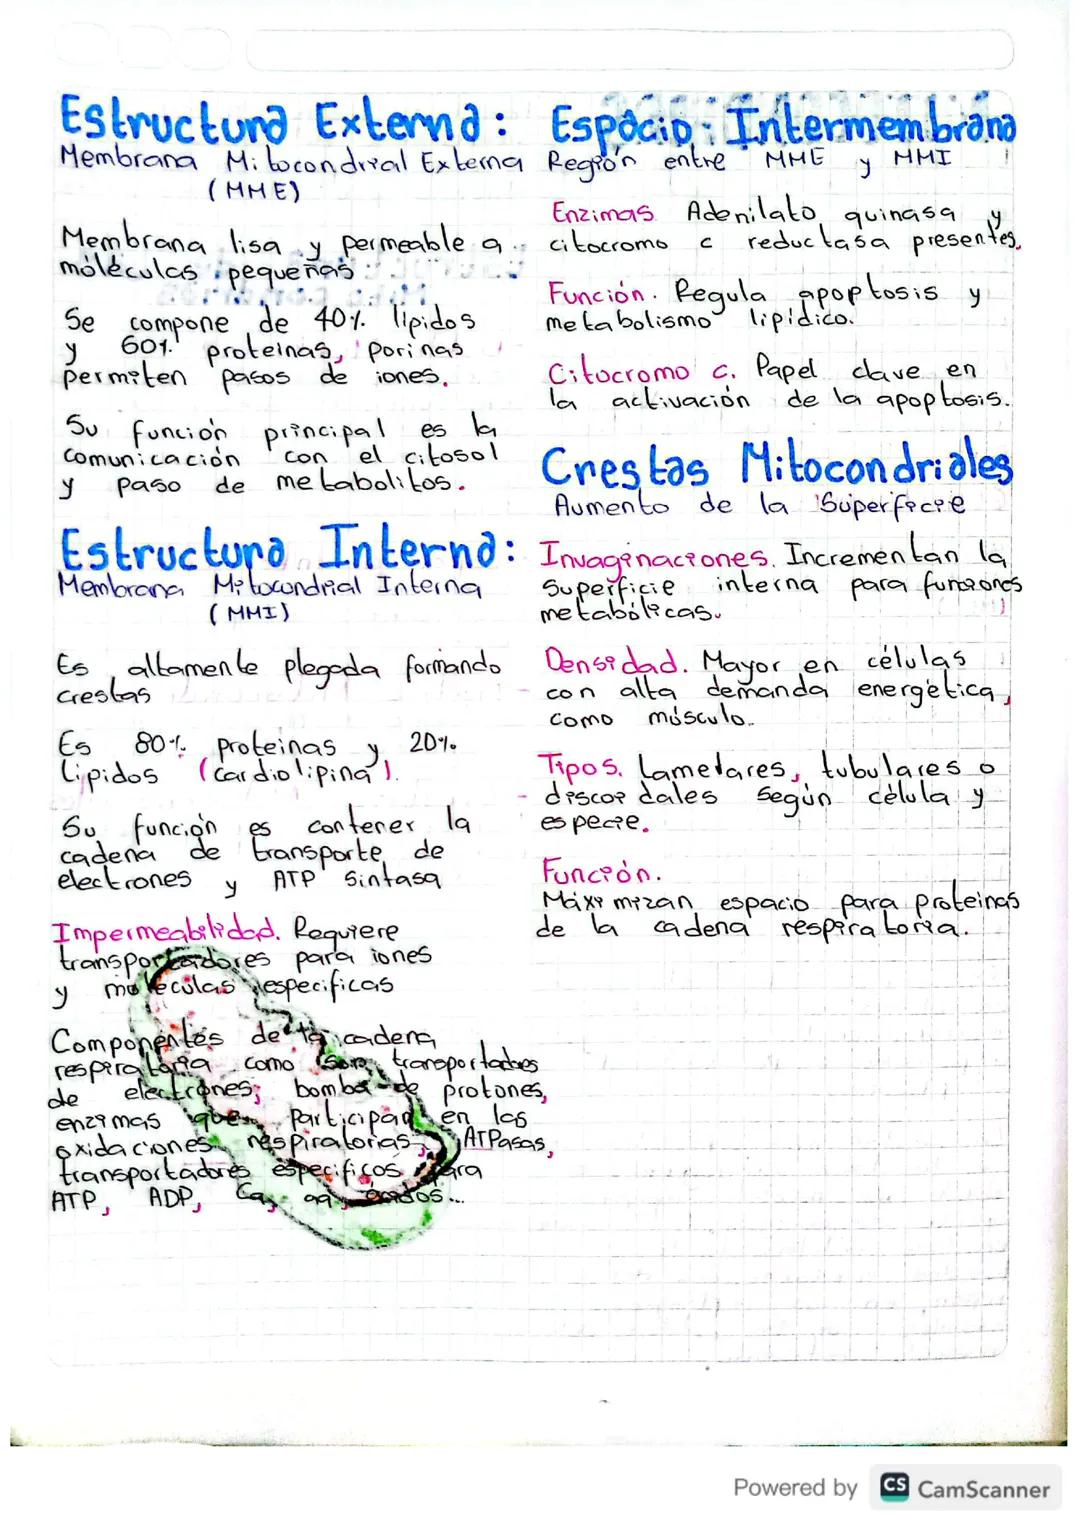 Estructura Externa:
Membrana Mitocondrial Externa
(MME)
Membrana lisa y permeable a
moléculas pequeñas
Se compone de 40% lípidos
y 60% proteinas, porinas
permiten pasos de iones.
Su función principal es la
comunicación con el citosol
y paso de metabolitos.
Estructura Interna:
Membrana Mitocondrial Interna
(MMI)
Es altamente plegada formando
crestas
Es 80% proteinas y 20%
Lipidos (cardiolipina).
Su función es contener la
cadena de transporte de
electrones y ATP Sintasa
Impermeabilidad. Requiere
transportadores para iones
y moleculas especificas
Componentes de la cadena
respiratoria como son transportadores
de electrones; bomba de protones,
enzimas que participan en las
oxidaciones respiratorias; ATPasas,
transportadores especificos para
ATP, ADP, Ca, aa, ácidos...
Espacio Intermembrana
Región entre MME y MMI
Enzimas Adenilato quinasa y
citocromo c reductasa presentes.
Función. Regula apoptosis y
metabolismo lipídico.
Citocromo c. Papel clave en
la activación de la apoptosis.
Crestas Mitocondriales
Aumento de la Superficie
Invaginaciones. Incrementan la
Superficie interna para funciones
metabólicas.
Densidad. Mayor en células
con alta demanda energética,
como músculo.
Tipos. Lamelares, tubulares o
discoidales según célula y
especie.
Función.
Máximizan espacio para proteinas
de la cadena respiratoria.
Powered by CS CamScanner